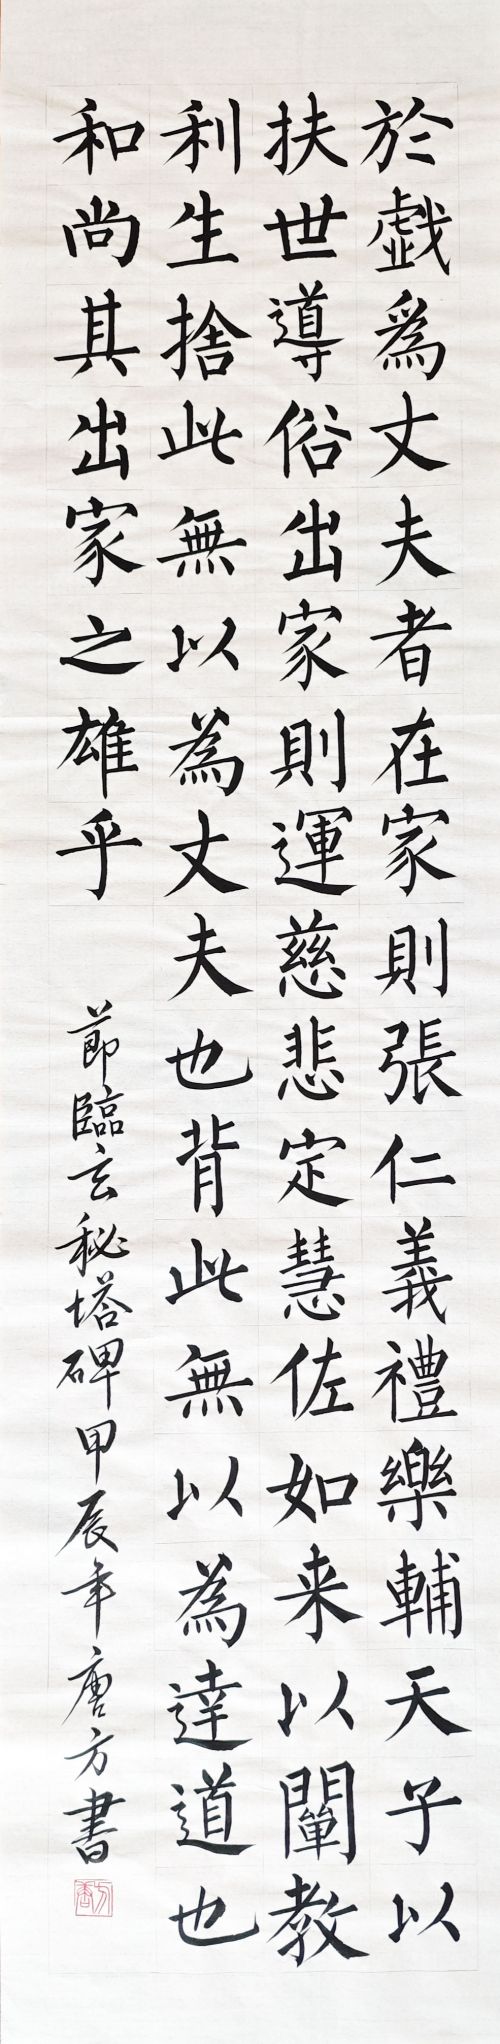 於戲為丈夫者在家則張仁義禮樂輔天子以
扶世導俗出家則運慈悲定慧佐如来以闡教
利生捨此無以為丈夫也背此無以為達道也
和尚其出家之雄乎
節臨玄秘塔碑甲辰年唐方書